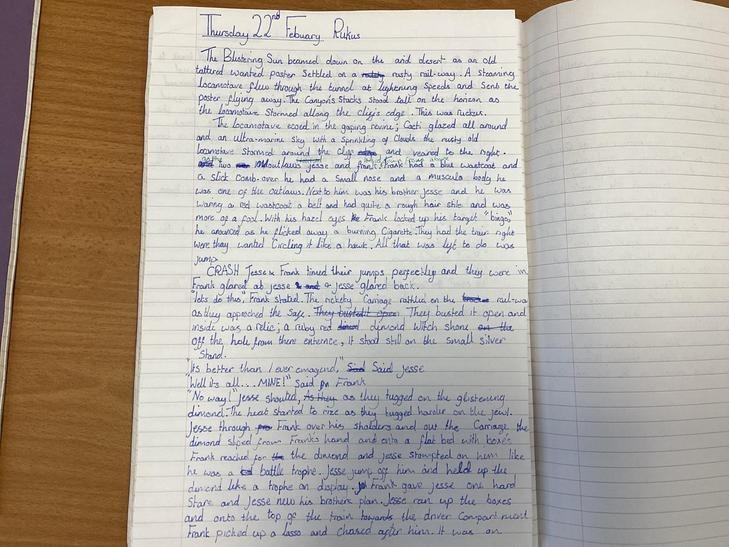 Thursday 22nd Febuary Rukus
The Blistering Sun beamed down on the arid desert as an old
tattered wanted poster Settled on a rusty rail-way. A steaming
locomotave flew through the tunnel at lightening speeds and Sent the
poster flying away. The Canyons Stacks stood tall on the horizon as
the locomotave Stormed along the cligs edge. This was ruckus.
The locomotave ecoed in the gaping revine; Cacti glazed all around
and an ultra-marine Sky with a Sprinkling of Clouds the rusty old
locomotave Stormed around the clig and veared to the right.
two outlaws jesse and frank. Frank had a blue wastcoat and
a slick comb-over he had a Small nose and a musculo body he
was one of the outlaws. Next to him was his brother Jesse and he was
waring a red wastcoat a belt and had quite a rough hair stile and was
more of a fool. With his hazel eyes Frank locked up his target "bingo"
he anounced as he flicked away a burning Cigarette. They had the train right
were they wanted Circling it like a hawk. All that was left to do was
jump
CRASH Jesse & Frank timed their jumps perfectly and they were in
Frank glared at jesse Jesse glared back.
"lets do this", Frank Stated. The rickety Carriage rattled on the rail-way
as they approched the Safe. They busted it open and
inside was a relic; a ruby red dimond Witch Shone
off the hole from there entrence, it stood still on the small silver
Stand.
"its better than I ever emagend," Said jesse
"Well it's all... MINE!" Said Frank
"No way!" Jesse shouted, as they tugged on the glistening
dimond. The heat started to rize as they tugged harder on the jewl.
Jesse through Frank over his sholders and out the Carriage the
dimond sliped from Franks hand and onto a flat bed with boxes
Frank reached for the dimond and jesse stompted on him like
he was a battle trophe. Jesse jump off him and held up the
dimond like a trophe on display. Frank gave jesse one hard
Stare and Jesse new his brothers plan. Jesse ran up the boxes
and onto the top of the train towards the driver Compartment
Frank picked up a lasso and chased after him. It was on